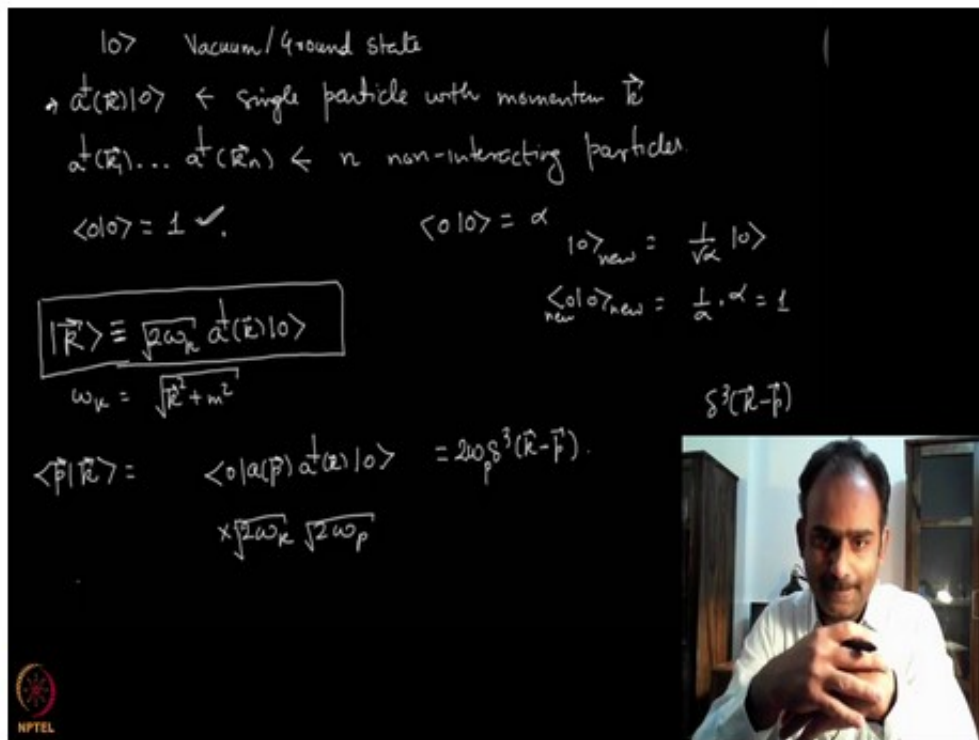 |0> Vacuum/Ground state
→ a†(k⃗)|0> ← single particle with momentum k⃗
a†(k⃗₁)... a†(k⃗n) ← n non-interacting particles.
<0|0> = 1 ✓.
<0|0> = α
|0>new = 1/√α |0>
new<0|0>new = 1/α . α = 1
|k⃗> ≡ √2ωk a†(k⃗)|0>
ωk = √k⃗² + m²
δ³(k⃗-p⃗)
<p⃗|k⃗> = <0|a(p⃗) a†(k⃗)|0> = 2ωp δ³(k⃗-p⃗).
×√2ωk √2ωp
NPTEL